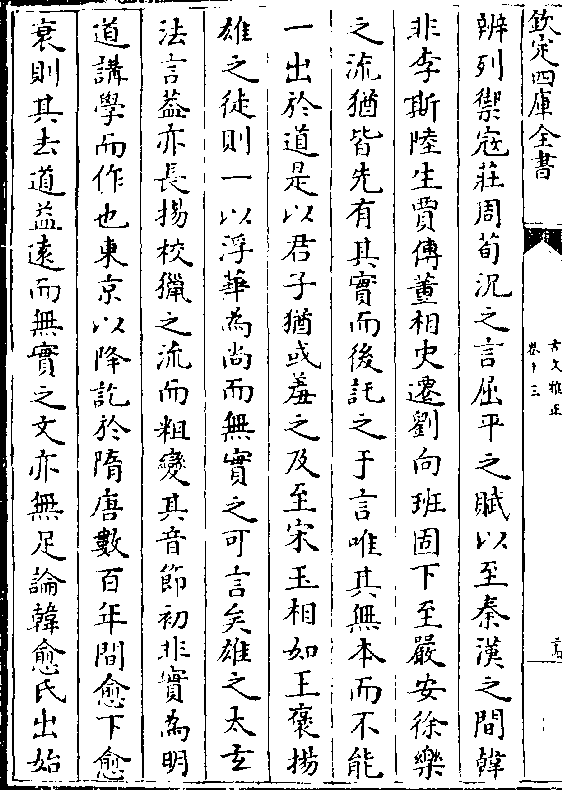 欽定四庫全書
古文雅正
卷十三
辨列禦寇莊周荀況之言屈平之賦以至秦漢之間韓
非李斯陸生賈傅董相史遷劉向班固下至嚴安徐樂
之流猶皆先有其實而後託之于言唯其無本而不能
一出於道是以君子猶或羞之及至宋玉相如王褒揚
雄之徒則一以浮華為尚而無實之可言矣雄之太玄
法言葢亦長揚校獵之流而粗變其音節初非實為明
道講學而作也東京以降訖於隋唐數百年間愈下愈
衰則其去道益遠而無實之文亦無足論韓愈氏出始